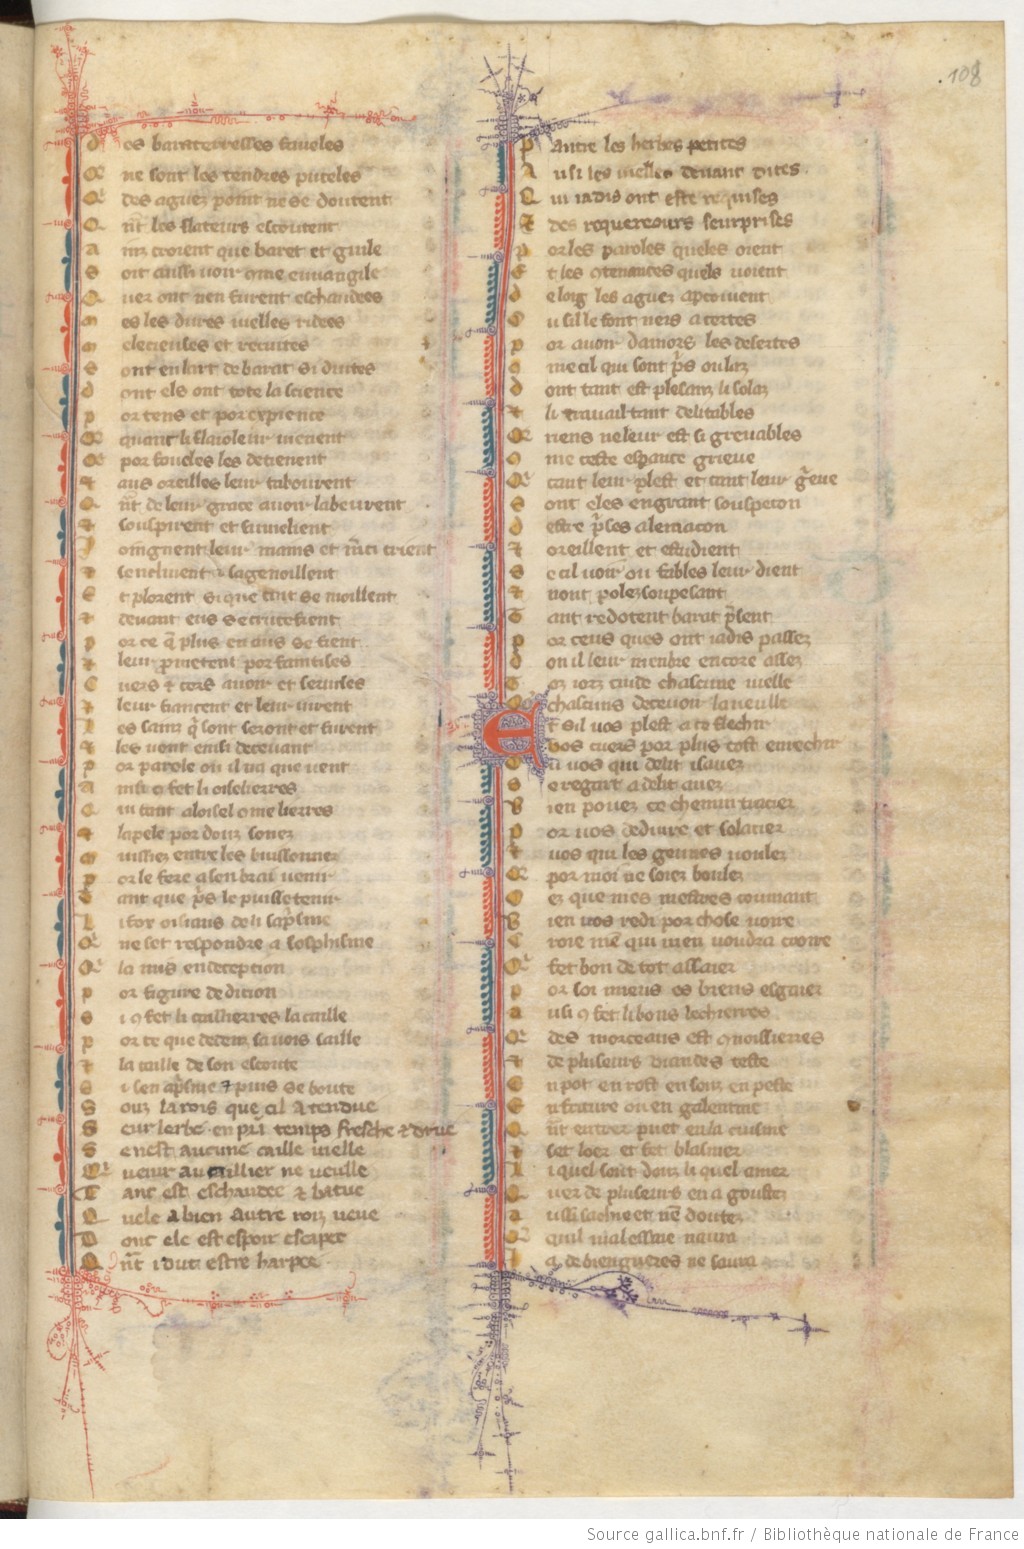 108
Des barateresses favoles
Que ne sont les tendres puceles
Qui des aguez point ne se doutent
Qnt les flateurs escoutent
Ainz croient que baret et guile
Soit aussi voir 9me euuangile
Quer onc nen furent eschaudees
Mes les dures vielles ridees
Malicieuses et recuites
Sont en lart de barat si duites
Dont els ont tote la science
Por tens et por expience
Que quant li flaioleur vienent
Que por favoles les detienent
Et aus oreilles leur tabourent
Qnt de leur grace avoir labeurent
Et souspirent et sumelient
Joingnent leur mains et mci crient
Et senclinent et sagenoillent
Et plorent si que tout se moillent
Et devant eus se crucefient
Por ce q plus en aus se fient
Et leur prometent por faintises
Cuers et cors avoir et servises
Et leur fiancent et leur iurent
Les sainz q sont seront et furent
Et les vont einsi decevant
Por parole ou il na que vent
Ainsi 9 fet li oiselierres
Qui tant aloisel 9me lierres
Et lapele por douz sonez
Muissiez entre les buissonnez
Por le fere a son brai venir
Tant que ps le puisse tenir
Li fox oisiaus de li saprisme
Qui ne set respondre a sophisme
Qui la mis en deception
Por figure de dicion
Si 9 fet li cailliers la caille
Por ce que dedenz sa rois saille
Et la caille de son escoute
Si sen apsme et puis se boute
Souz la rois que cil a tendue
Seur lerbe en prin temps fresche et drue
Se nest aucune caille vielle
Qui venir au caillier ne veulle
Tant est eschaudee et batue
Quele a bien autre roiz veue
Dont ele est espoir escapee
Qnt i dut estre harpee
Pantre les herbes petites
Ausi les vielles devant dites
Qui iadis ont este requises
Et des requereours seurprises
Por les paroles queles oient
Et les 9tenances quels voient
De loig les aguez apcoivent
Su sil le font ners a certes
Por avoir damors les desertes
9me cil qui sont ps ou laz
Dont tant est plesanz li solaz
Et li travail tant delitables
Que riens ne leur est si grevables
9me ceste espance grieve
Qui tant leur plest et tant leur grieve
Sont eles en grant souspecon
Destre pses a lemacon
Et oreillent et estudient
Se cil voir ou fables leur dient
Et vont polez soupesant
Tant redotent barat psent
Por ceus ques ont iadis passez
Don il leur menbre encore assez
Toz iorz cuide chascune vielle
Que chascuns decevoir la veulle
Et sil vos plest a ce flechir
Vos cuers por plus tost enrechir
Ou vos qui delit i savez
Se regart a delit avez
Bien pouez ce chemin tracier
Por vos deduire et solacier
Et vos qui les geunes voulez
Que por moi ne soiez boulez
Bien vos redi por chose voire
Croie me qui men voudra croire
Quil fet bon de tot assaier
Por soi miens es biens esgaier
Ausi 9 fet li bons lechierres
Qui des morceaus est 9noissierres
Et de pluseurs viandes teste
En pot en rost en souz en peste
En friture ou en galentine
Qnt entrer puet en la cuisine
Et set loer et set blasmer
Li quel sont douz li quel amer
Quer de pluseurs en a goustez
Aussi sachiez et nen doutez
Que qui mal essaie naura
Ia de bien gueres ne saura
Source gallica.bnf.fr / Bibliothèque nationale de France